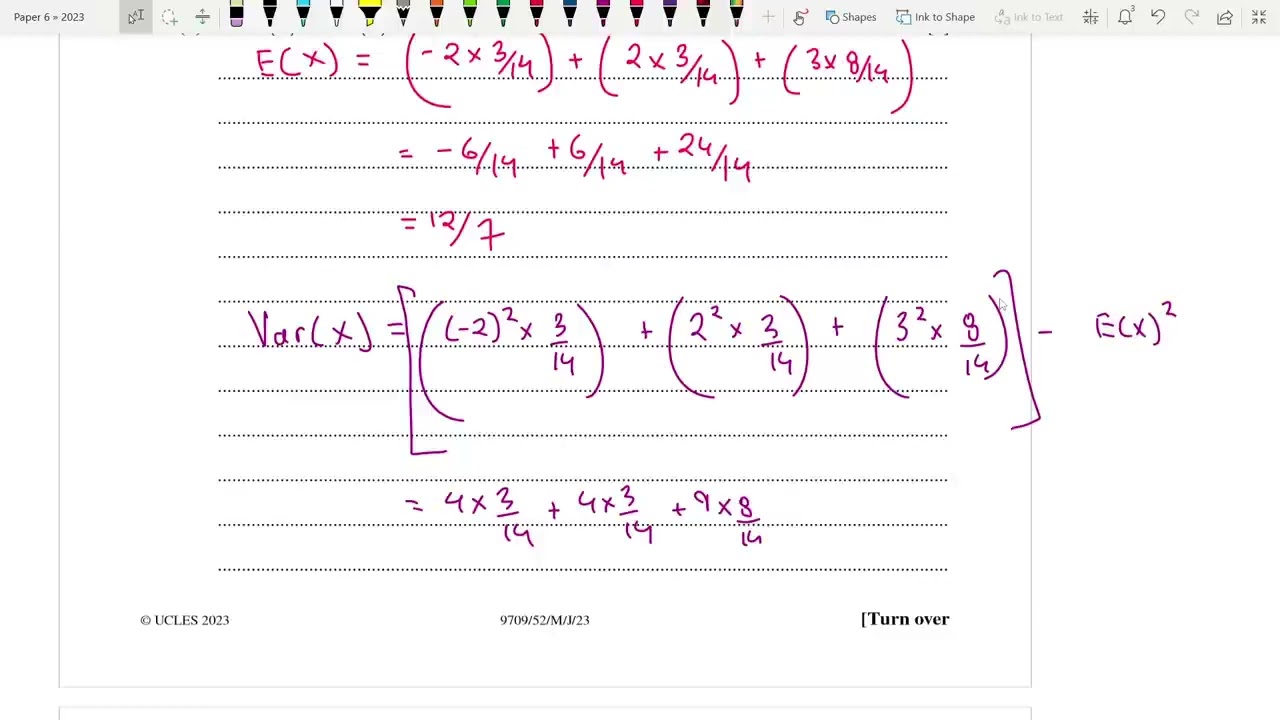 Paper 6 » 2023
Shapes
Ink to Shape
Ink to Text
E(X) = (-2 × 3/14) + (2 × 3/14) + (3 × 8/14)
= -6/14 + 6/14 + 24/14
= 12/7
Var(X) = [((-2)² × 3/14) + (2² × 3/14) + (3² × 8/14)] - E(X)²
= 4 × 3/14 + 4 × 3/14 + 9 × 8/14
© UCLES 2023
9709/52/M/J/23
[Turn over